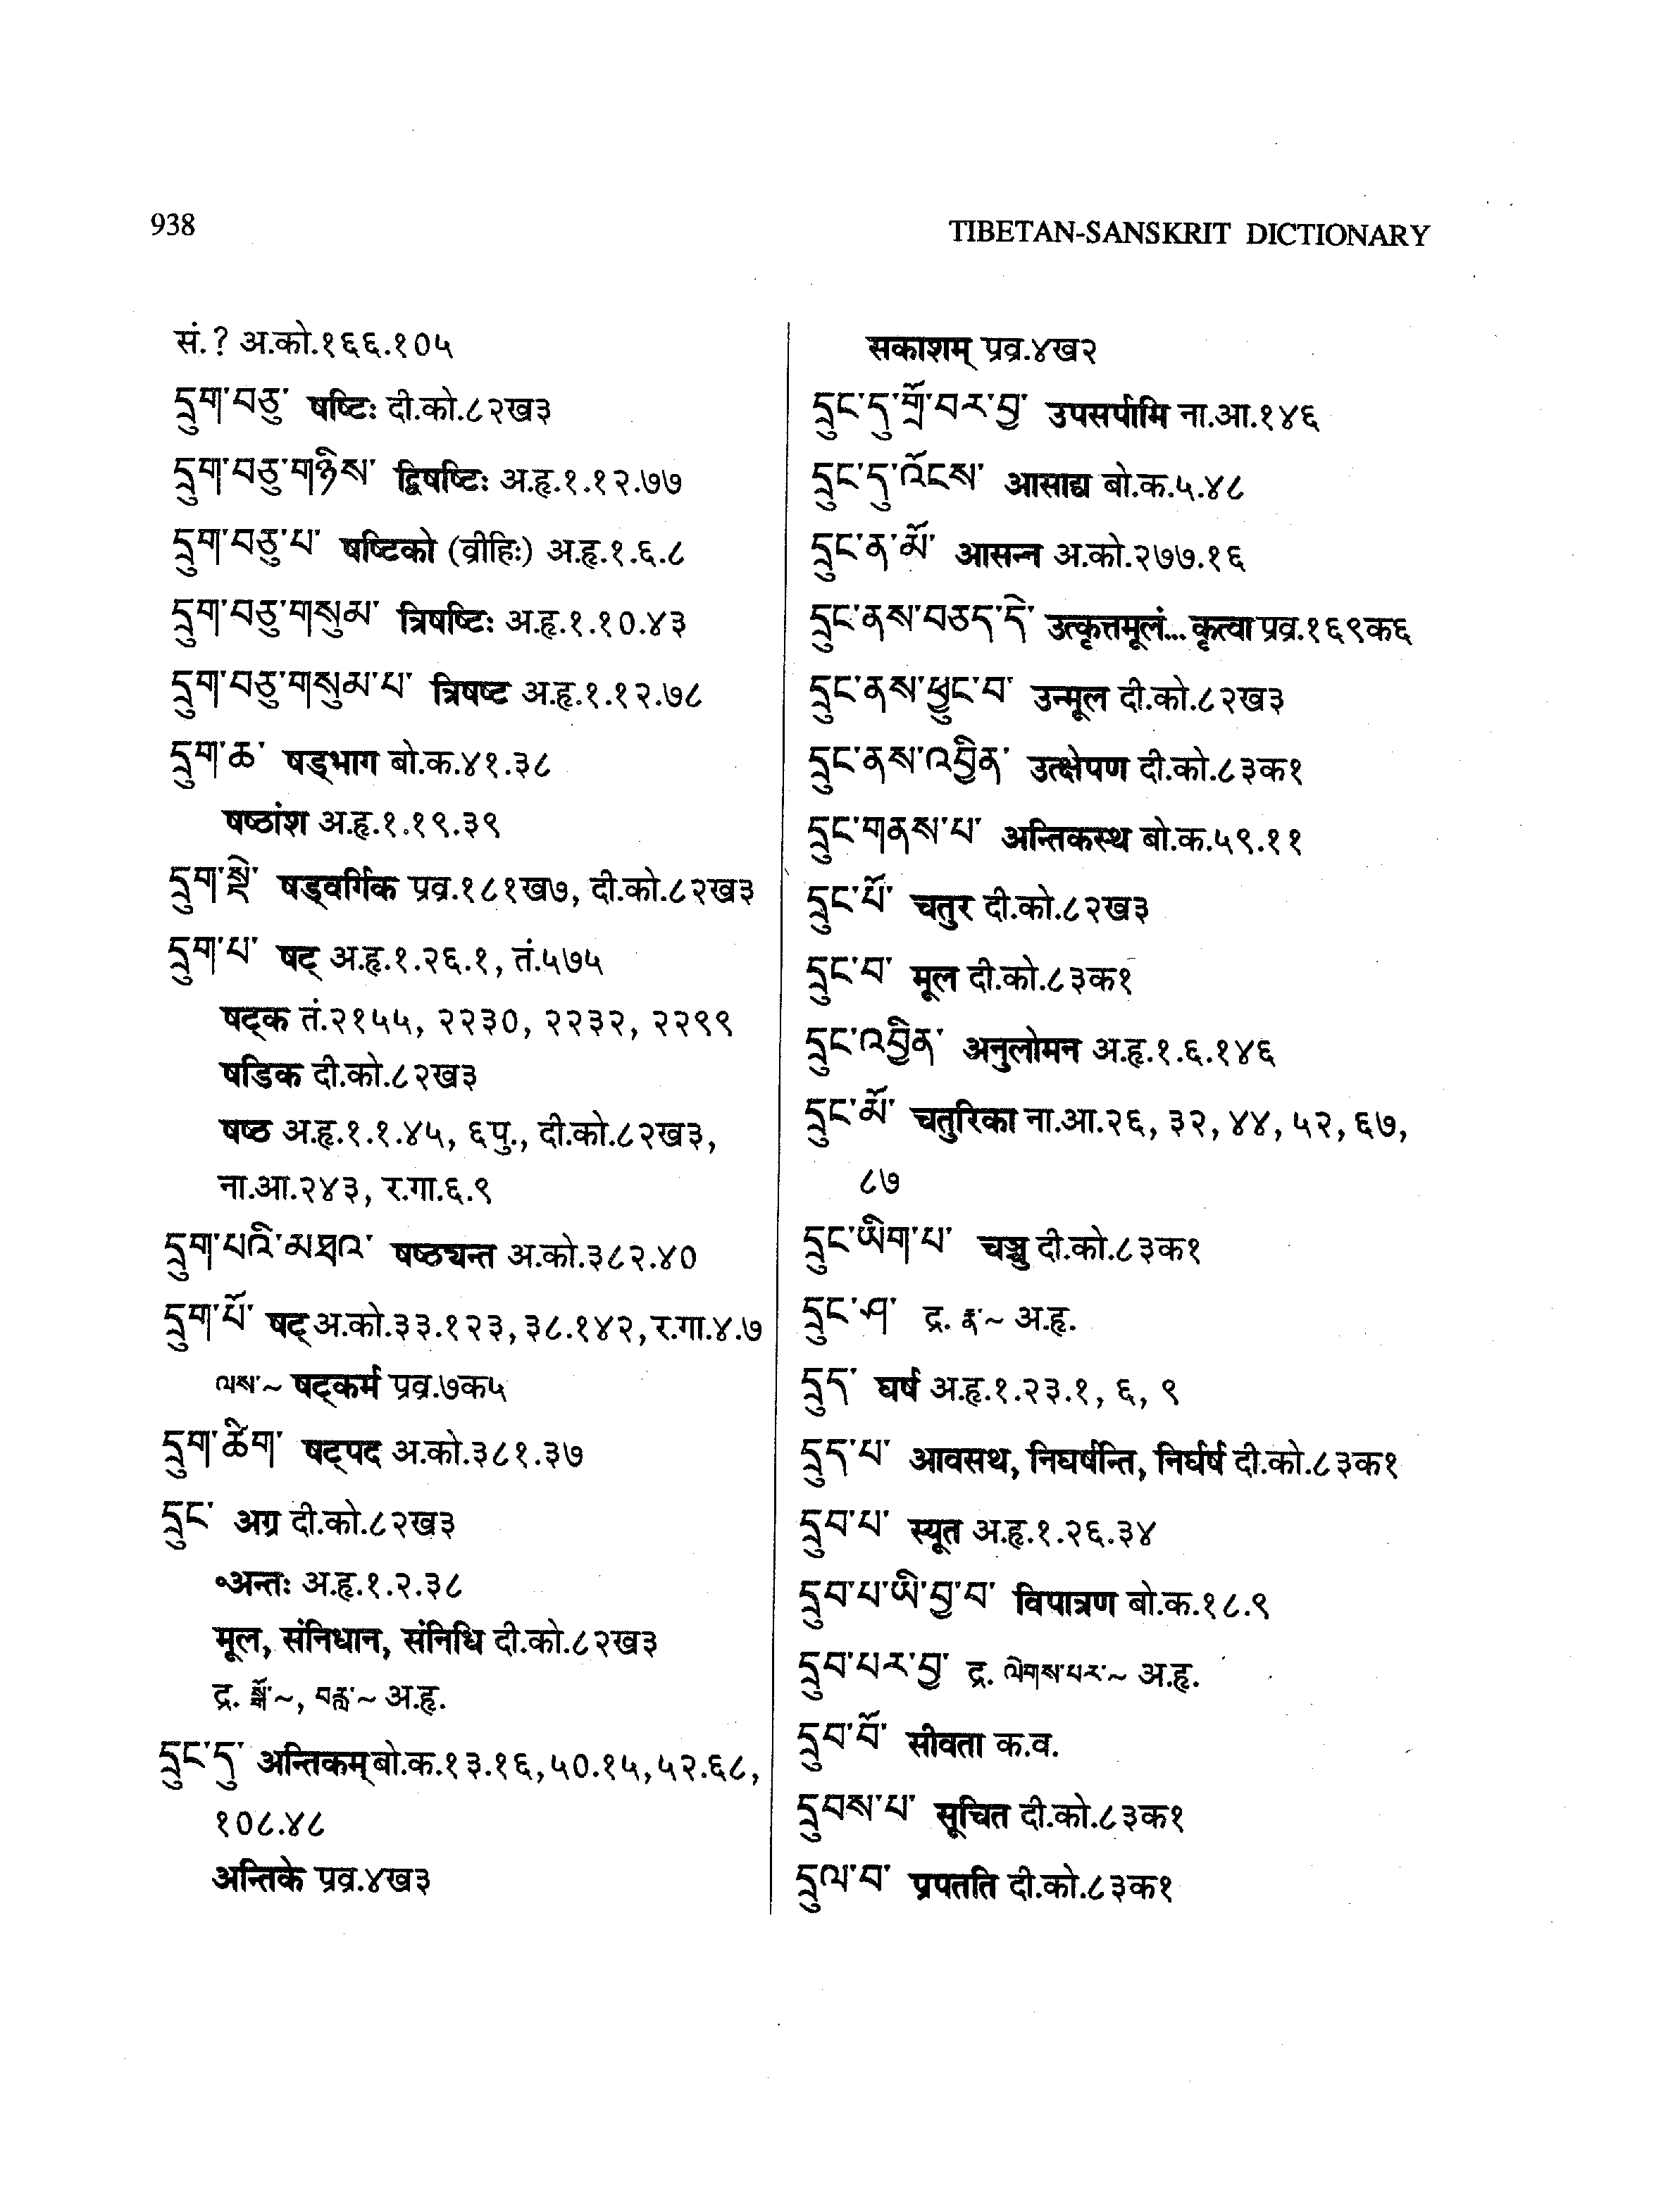 938
TIBETAN-SANSKRIT DICTIONARY
सं.? अ.को.१६६.१०५
དྲུག་བཅུ་ षष्टिः दी.को.८२ख३
དྲུག་བཅུ་གཉིས་ द्विषष्टिः अ.हृ.१.१२.७७
དྲུག་བཅུ་པ་ षष्टिको (व्रीहिः) अ.हृ.१.६.८
དྲུག་བཅུ་གསུམ་ त्रिषष्टिः अ.हृ.१.१०.४३
དྲུག་བཅུ་གསུམ་པ་ त्रिषष्ट अ.हृ.१.१२.७८
དྲུག་ཆ་ षड्भाग बो.क.४१.३८
षष्ठांश अ.हृ.१.१९.३९
དྲུག་སྡེ་ षड्वर्गिक प्रव्र.१८१ख७, दी.को.८२ख३
དྲུག་པ་ षट् अ.हृ.१.२६.१, तं.५७५
षट्क तं.२१५५, २२३०, २२३२, २२९९
षडिक दी.को.८२ख३
षष्ठ अ.हृ.१.१.४५, ६पु., दी.को.८२ख३,
ना.आ.२४३, र.गा.६.९
དྲུག་པའི་མཐའ་ षष्ठ्यन्त अ.को.३८२.४०
དྲུག་པོ་ षट् अ.को.३३.१२३, ३८.१४२, र.गा.४.७
ལས་~ षट्कर्म प्रव्र.७क५
དྲུག་ཚིག་ षट्पद अ.को.३८१.३७
དྲུང་ अग्र दी.को.८२ख३
॰अन्तः अ.हृ.१.२.३८
मूल, संनिधान, संनिधि दी.को.८२ख३
द्र. སྒོ་~, བརྒྱ་~ अ.हृ.
དྲུང་དུ་ अन्तिकम् बो.क.१३.१६, ५०.१५, ५२.६८,
१०८.४८
अन्तिके प्रव्र.४ख३
सकाशम् प्रव्र.४ख२
དྲུང་དུ་གྲོ་བར་བྱ་ उपसर्पामि ना.आ.१४६
དྲུང་དུ་འོངས་ आसाद्य बो.क.५.४८
དྲུང་ན་མོ་ आसन्न अ.को.२७७.१६
དྲུང་ནས་བཅད་དེ་ उत्कृत्तमूलं... कृत्वा प्रव्र.१६९क६
དྲུང་ནས་ཕྱུང་བ་ उन्मूल दी.को.८२ख३
དྲུང་ནས་འབྱིན་ उत्क्षेपण दी.को.८३क१
དྲུང་གནས་པ་ अन्तिकस्थ बो.क.५९.११
དྲུང་པོ་ चतुर दी.को.८२ख३
དྲུང་བ་ मूल दी.को.८३क१
དྲུང་འབྱིན་ अनुलोमन अ.हृ.१.६.१४६
དྲུང་མོ་ चतुरिका ना.आ.२६, ३२, ४४, ५२, ६७,
८७
དྲུང་ཡིག་པ་ चञ्चु दी.को.८३क१
དྲུང་ཤ་ द्र. རྣ་~ अ.हृ.
དྲུད་ घर्ष अ.हृ.१.२३.१, ६, ९
དྲུད་པ་ आवसथ, निघर्षन्ति, निर्घर्ष दी.को.८३क१
དྲུབ་པ་ स्यूत अ.हृ.१.२६.३४
དྲུབ་པ་ཡི་བྱ་བ་ विपात्रण बो.क.१८.९
དྲུབ་པར་བྱ་ द्र. ལེགས་པར་~ अ.हृ.
དྲུབ་བོ་ सीवता क.व.
དྲུབས་པ་ सूचित दी.को.८३क१
དྲུལ་བ་ प्रपतति दी.को.८३क१